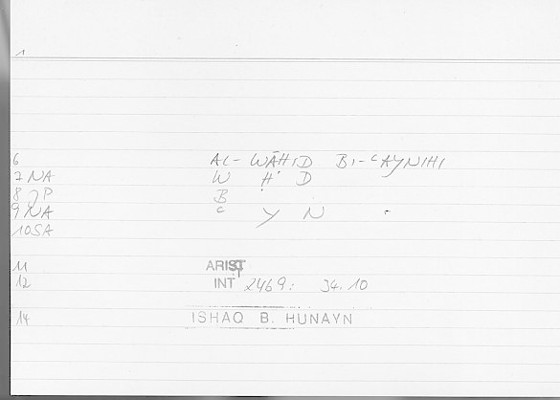 1
6 AL-WĀḤID BI-ʿAYNIHI
7 NA W Ḥ D
8 JP B
9 NA ʿ Y N
10 SA
11 ARIST
12 INT 2469: 34.10
14 ISHAQ B. HUNAYN